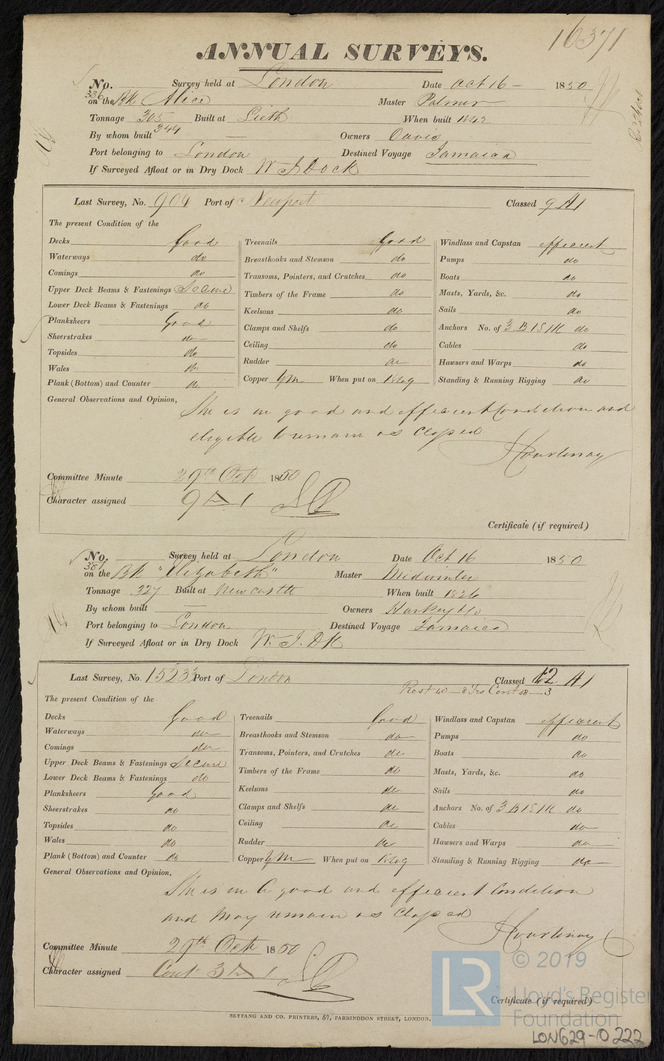 16371
ANNUAL SURVEYS.
No. 336 Survey held at London Date Oct 16 1850
on the Bk Alice Master Palmer
Tonnage 305 344 Built at Leith When built 1842
By whom built — Owners Davis
Port belonging to London Destined Voyage Jamaica
If Surveyed Afloat or in Dry Dock W. I. Dock
Last Survey, No. 904 Port of Newport Classed 9 A1
The present Condition of the
Decks Good
Waterways do
Comings do
Upper Deck Beams & Fastenings Secure
Lower Deck Beams & Fastenings do
Planksheers Good
Sheerstrakes do
Topsides do
Wales do
Plank (Bottom) and Counter do
Treenails Good
Breasthooks and Stemson do
Transoms, Pointers, and Crutches do
Timbers of the Frame do
Keelsons do
Clamps and Shelfs do
Ceiling do
Rudder do
Copper YM When put on
Windlass and Capstan efficient
Pumps do
Boats do
Masts, Yards, &c. do
Sails do
Anchors No. of 3 B 1 S 1 K do
Cables do
Hawsers and Warps do
Standing & Running Rigging do
General Observations and Opinion,
She is in good and efficient Condition and
eligible to remain as Classed
J Courtenay
Committee Minute 29th Oct 1850
Character assigned 9 A 1
Certificate (if required)
No. 337 Survey held at London Date Oct 16 1850
on the Bk "Elizabeth" Master Midwinter
Tonnage 327 Built at Newcastle When built 1826
By whom built — Owners Hankey & Co
Port belonging to London Destined Voyage Jamaica
If Surveyed Afloat or in Dry Dock W. I. Dk
Last Survey, No. 1523 Port of London Classed 12 A1
The present Condition of the
Decks Good
Waterways do
Comings do
Upper Deck Beams & Fastenings Secure
Lower Deck Beams & Fastenings do
Planksheers Good
Sheerstrakes do
Topsides do
Wales do
Plank (Bottom) and Counter do
Treenails Good
Breasthooks and Stemson do
Transoms, Pointers, and Crutches do
Timbers of the Frame do
Keelsons do
Clamps and Shelfs do
Ceiling do
Rudder do
Copper YM When put on
Windlass and Capstan efficient
Pumps do
Boats do
Masts, Yards, &c. do
Sails do
Anchors No. of 3 B 1 S 1 K do
Cables do
Hawsers and Warps do
Standing & Running Rigging do
General Observations and Opinion,
She is in a good and efficient Condition
and may remain as Classed
J Courtenay
Committee Minute 29th Oct 1850
Character assigned Cont 3 A 1
Certificate (if required)
SEYFANG AND CO. PRINTERS, 57, FARRINGDON STREET, LONDON.
LR © 2019
Lloyd's Register
Foundation
LON629-0222